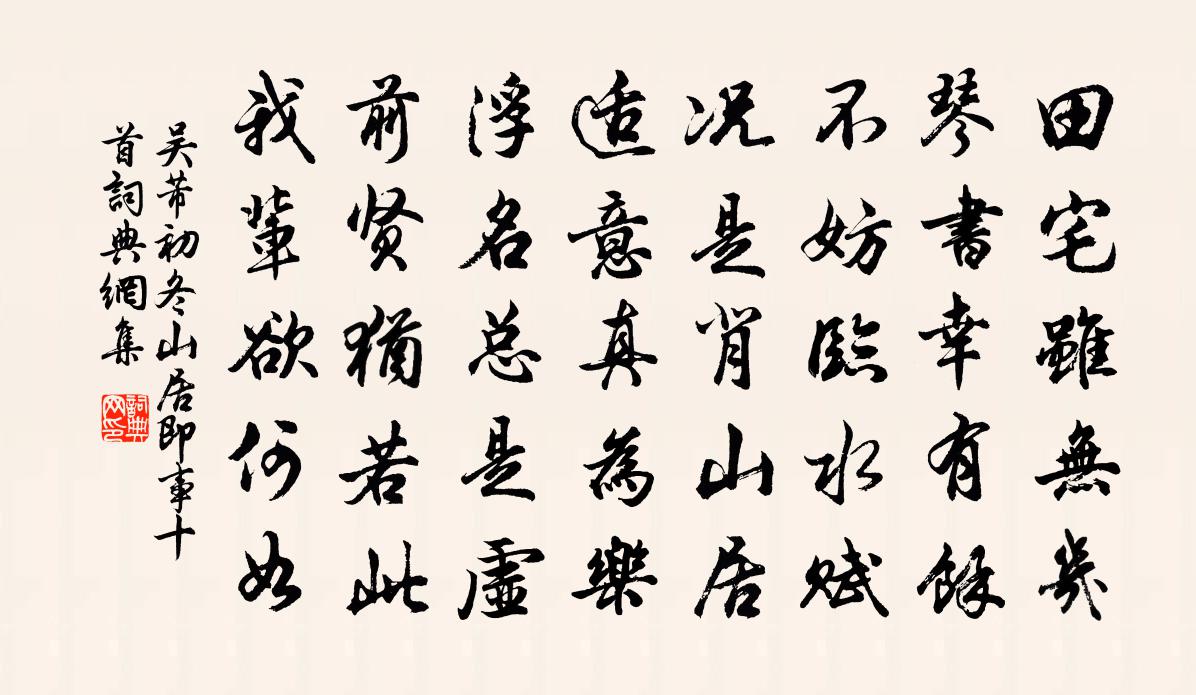 田宅雖無幾
琴書幸有餘
不妨臨水賦
况是肖山居
适意真為樂
浮名总是虛
前贤猶若此
我輩欲何如
吴芾初冬山居即事十
首詞典網集
詞典網印